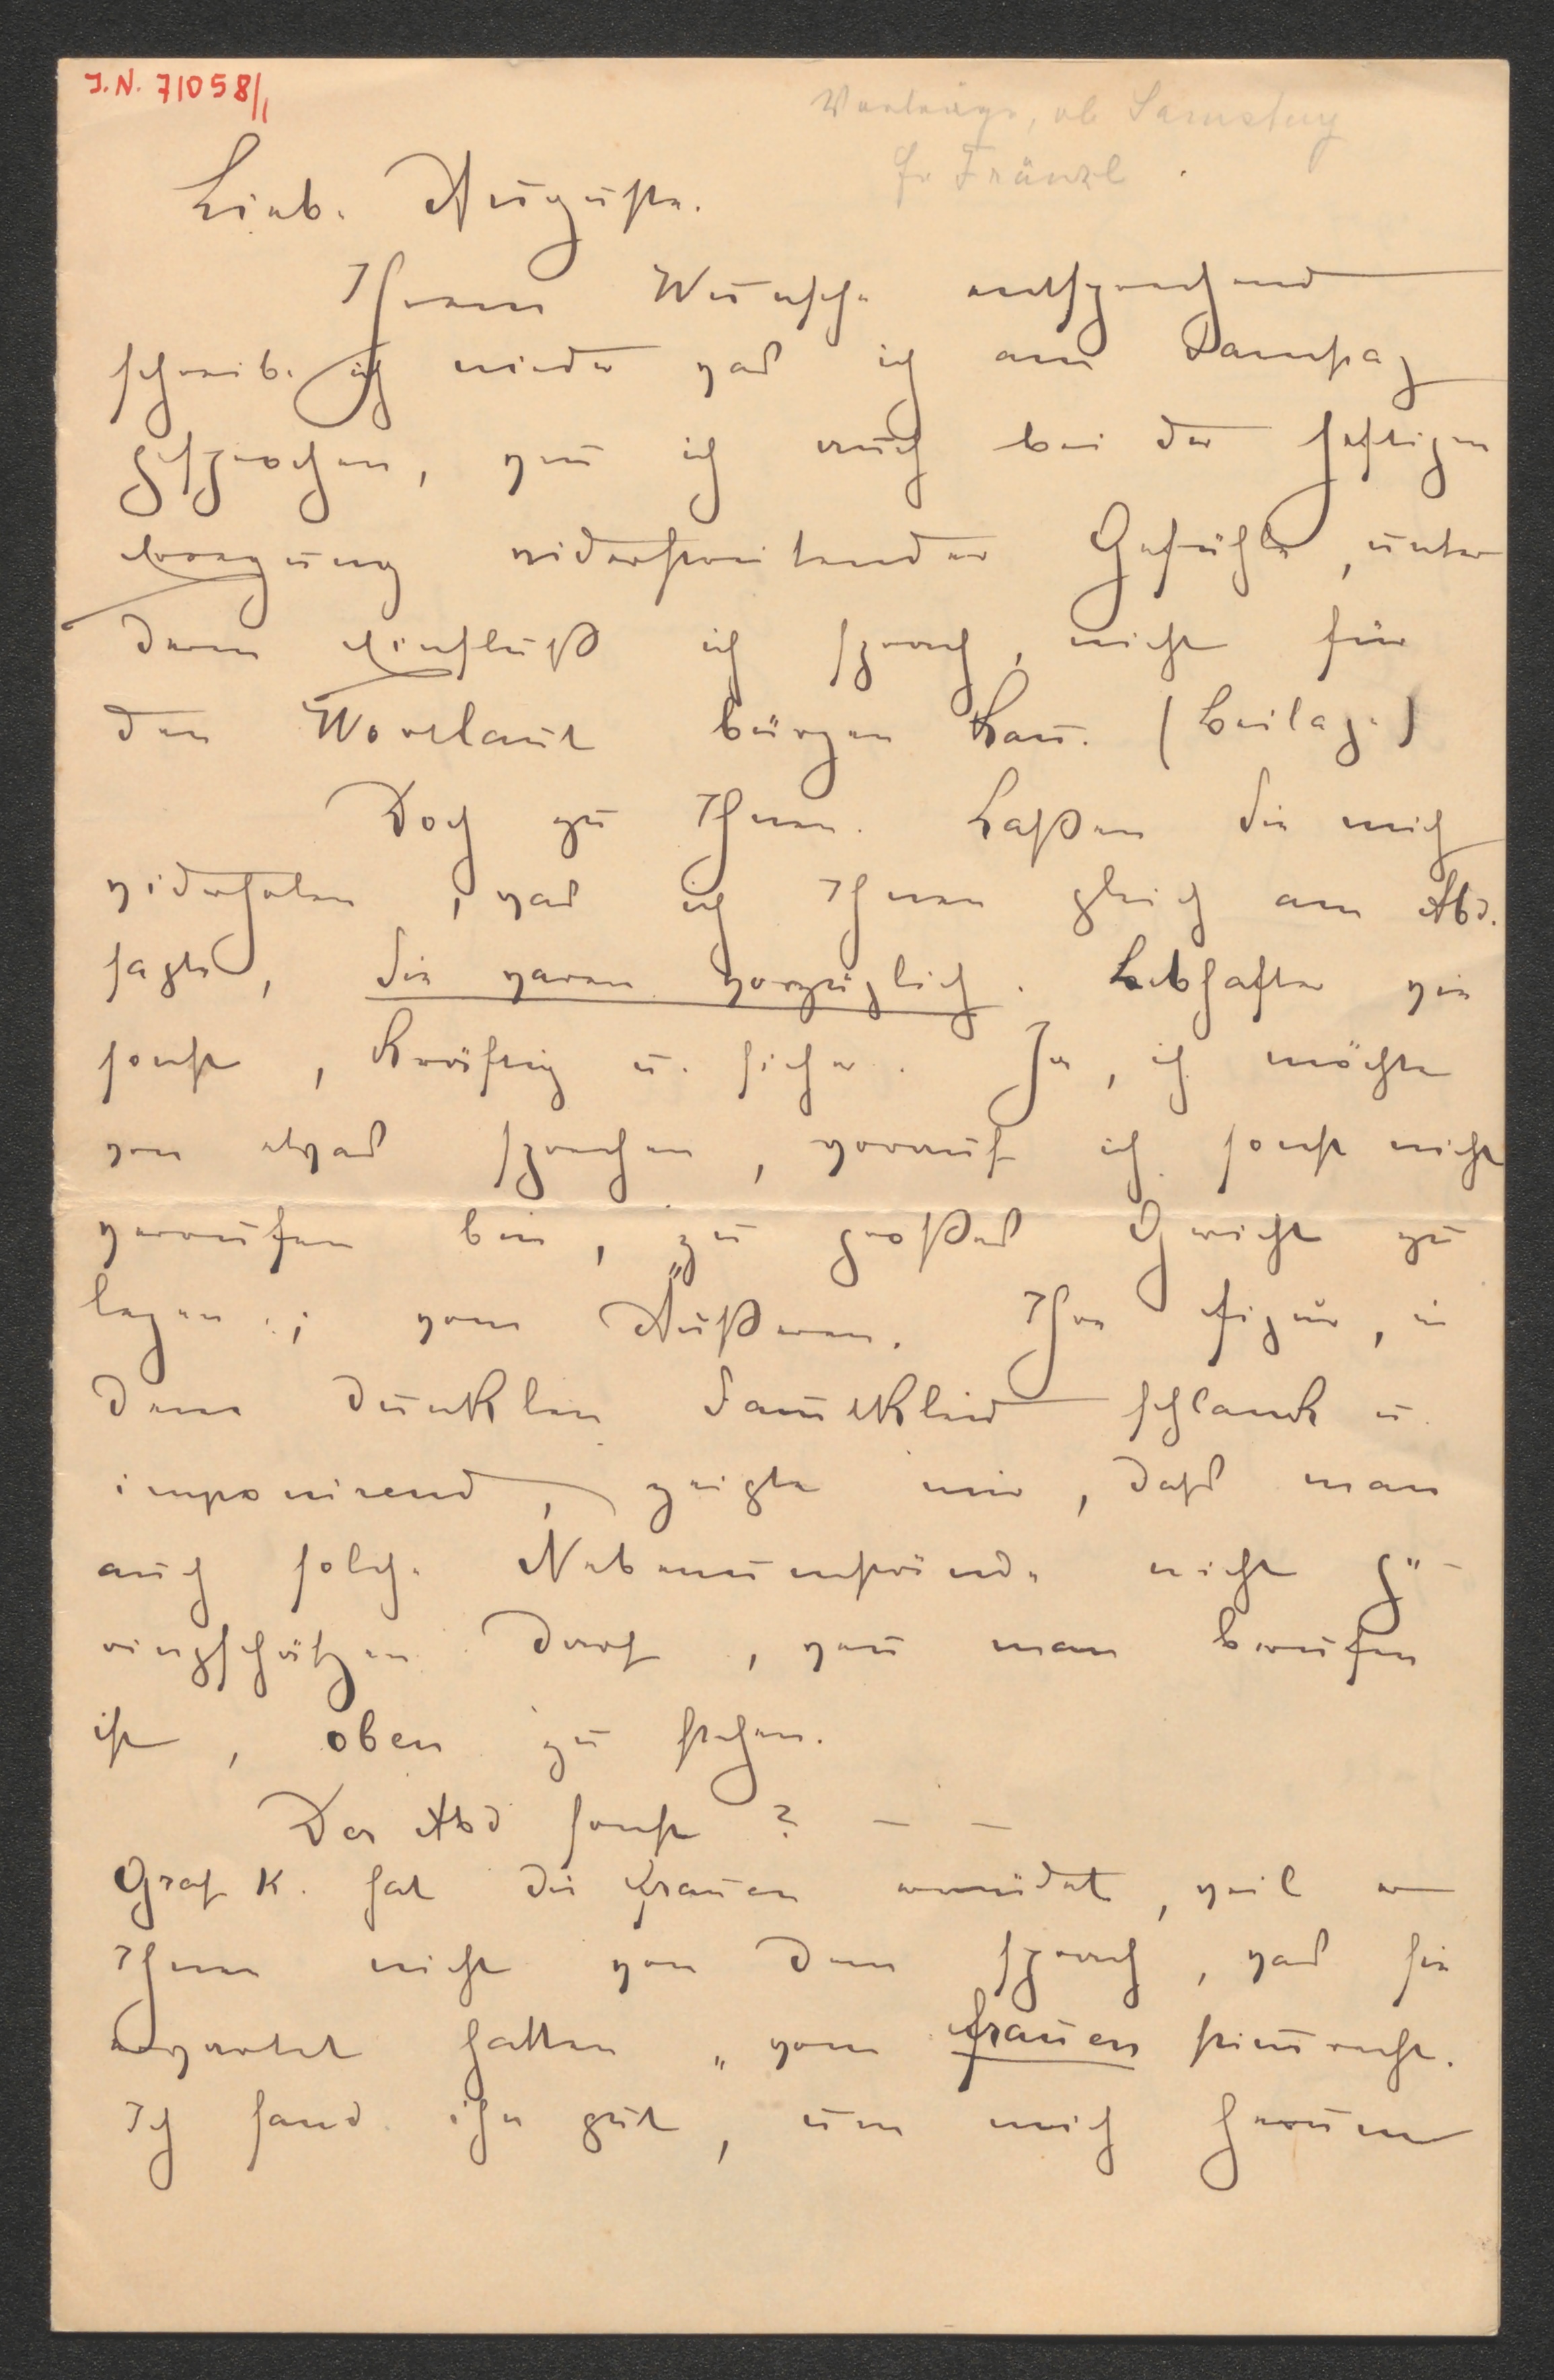 J.N. 71058/1
Vorträge, ob Samstag
Fr Fränzl
Liebe Auguste.
Ihrem Wunsche entsprechend
schreibe ich nieder was ich am Samstag
gesprochen, wenn ich auch bei der heftigen
Erregung widerstreitender Gefühle, unter
deren Einfluß ich sprach, nicht für
den Wortlaut bürgen kan. (Beilage)
Doch zu Ihnen. Laßen Sie mich
widerholen, was ich Ihnen gleich am Abd.
sagte, Sie waren vorzüglich. Lebhafter wie
sonst, kräftig u. sicher. Ja, ich möchte
von etwas sprechen, worauf ich sonst nicht
versessen bin, zu großes Gewicht zu
legen; vom Äußeren. Ihre Figur, in
dem dunklen Samtkleid schlank u.
imponirend, zeigte mir, dass man
auch solche Nebenumstände nicht ge-
ringschätzen darf, wen man berufen
ist, oben zu stehen.
Der Abd sonst? — —
Graf K. hat die Frauen ermüdet, weil er
Ihnen nicht von dem sprach, was sie
erwartet hatten, vom Frauenstimmrecht.
Ich fand ihn gut, um mich herum